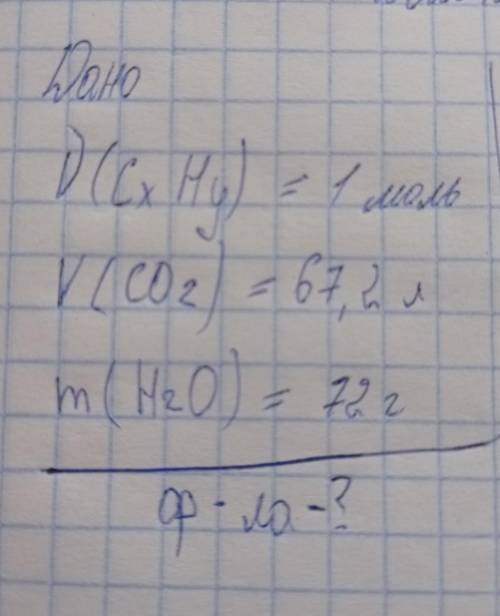 Дано
ν(CxHy) = 1 моль
V(CO2) = 67,2 л
m(H2O) = 72 г
ф-ла-?